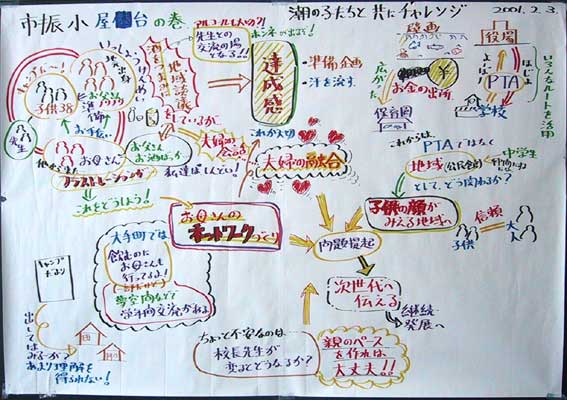 市振小屋台の巻
潮の子たちと共にチャレンジ
2001.2.3.
先生との
交流の場
となる!!
ホンネが出せる
達成感
・準備・企画
・汗を流す
壁画
お金の出所
広がった
保育園
役場
PTA
学校
いろんなルートを活用
キャンプだホー!
子供38
お父さん
先生
お手伝い
お母さん
地域談義
お父さん
お酒ばっか
夫婦の会話
これが大切
夫婦の融合
フラストレーションが
私達はしんどい!
これをどうしよう!
お母さんの
ネットワークづくり
これからは
PTAではなく
地域(公民館)
として、どう関わるか?
中学生
子供の顔が
みえる地域へ
信頼
子供
大人
問題提起
次世代へ
伝える
継続
発展へ
大手町では
飲むのだ
お母さんも
行ってるよ!
夢空間などで
学年間交流がある
キャンプ
だより
出してはみるが?
あまり理解を
得られない!
ちょっと不安なのは
校長先生が
変るとどうなるか?
親のペース
を作れば
大丈夫!!